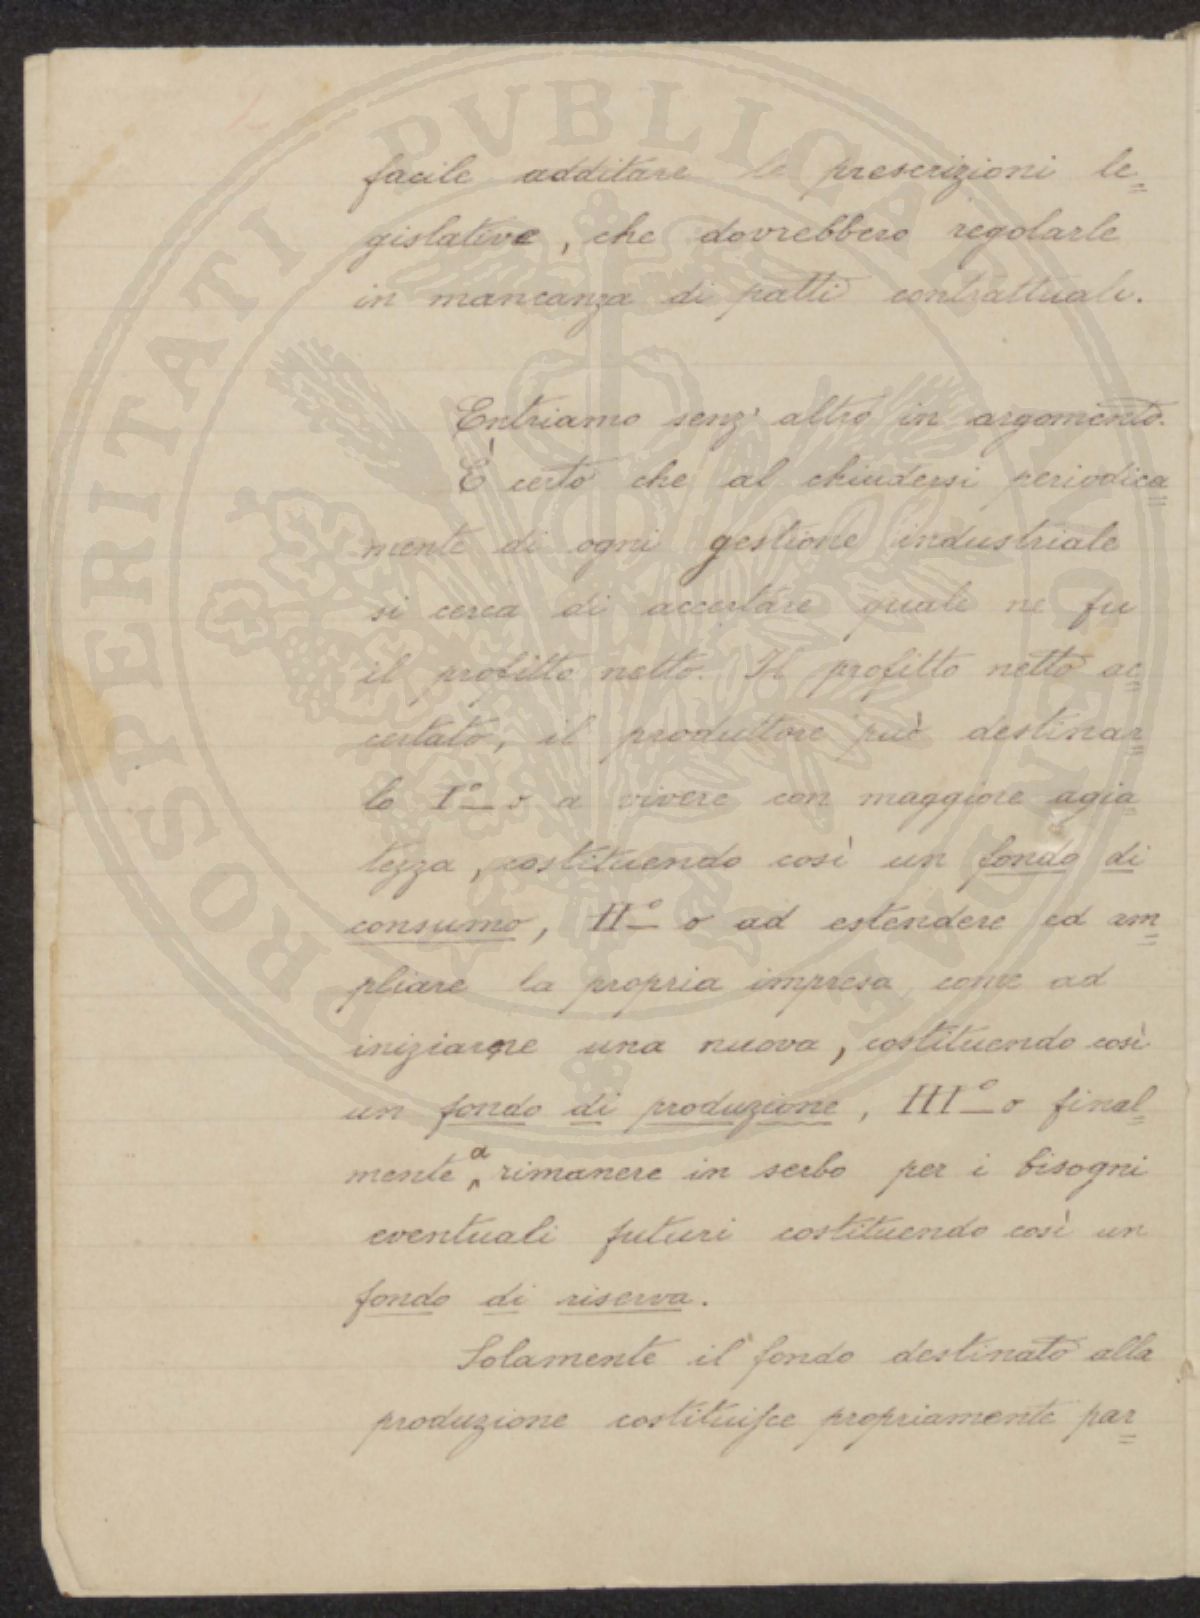 PROSPERITATI PVBLICAE AVGENDAE
facile additare le prescrizioni le=
gislative, che dovrebbero regolarle
in mancanza di patti contrattuali.
Entriamo senz' altro in argomento.
È certo che al chiudersi periodica=
mente di ogni gestione industriale
si cerca di accertare quale ne fu
il profitto netto. Il profitto netto ac=
certato, il produttore può destinar=
lo I° o a vivere con maggiore agia
tezza, costituendo così un fondo di
consumo, II° o ad estendere ed am=
pliare la propria impresa, come ad
iniziarne una nuova, costituendo così
un fondo di produzione, III° o final=
mente a rimanere in serbo per i bisogni
eventuali futuri costituendo così un
fondo di riserva.
Solamente il fondo destinato alla
produzione costituisce propriamente par=